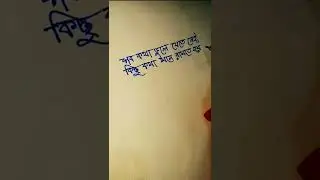 সব কথা ভুলে যেতে নেই
কিছু কথা মনে রাখতে হয়